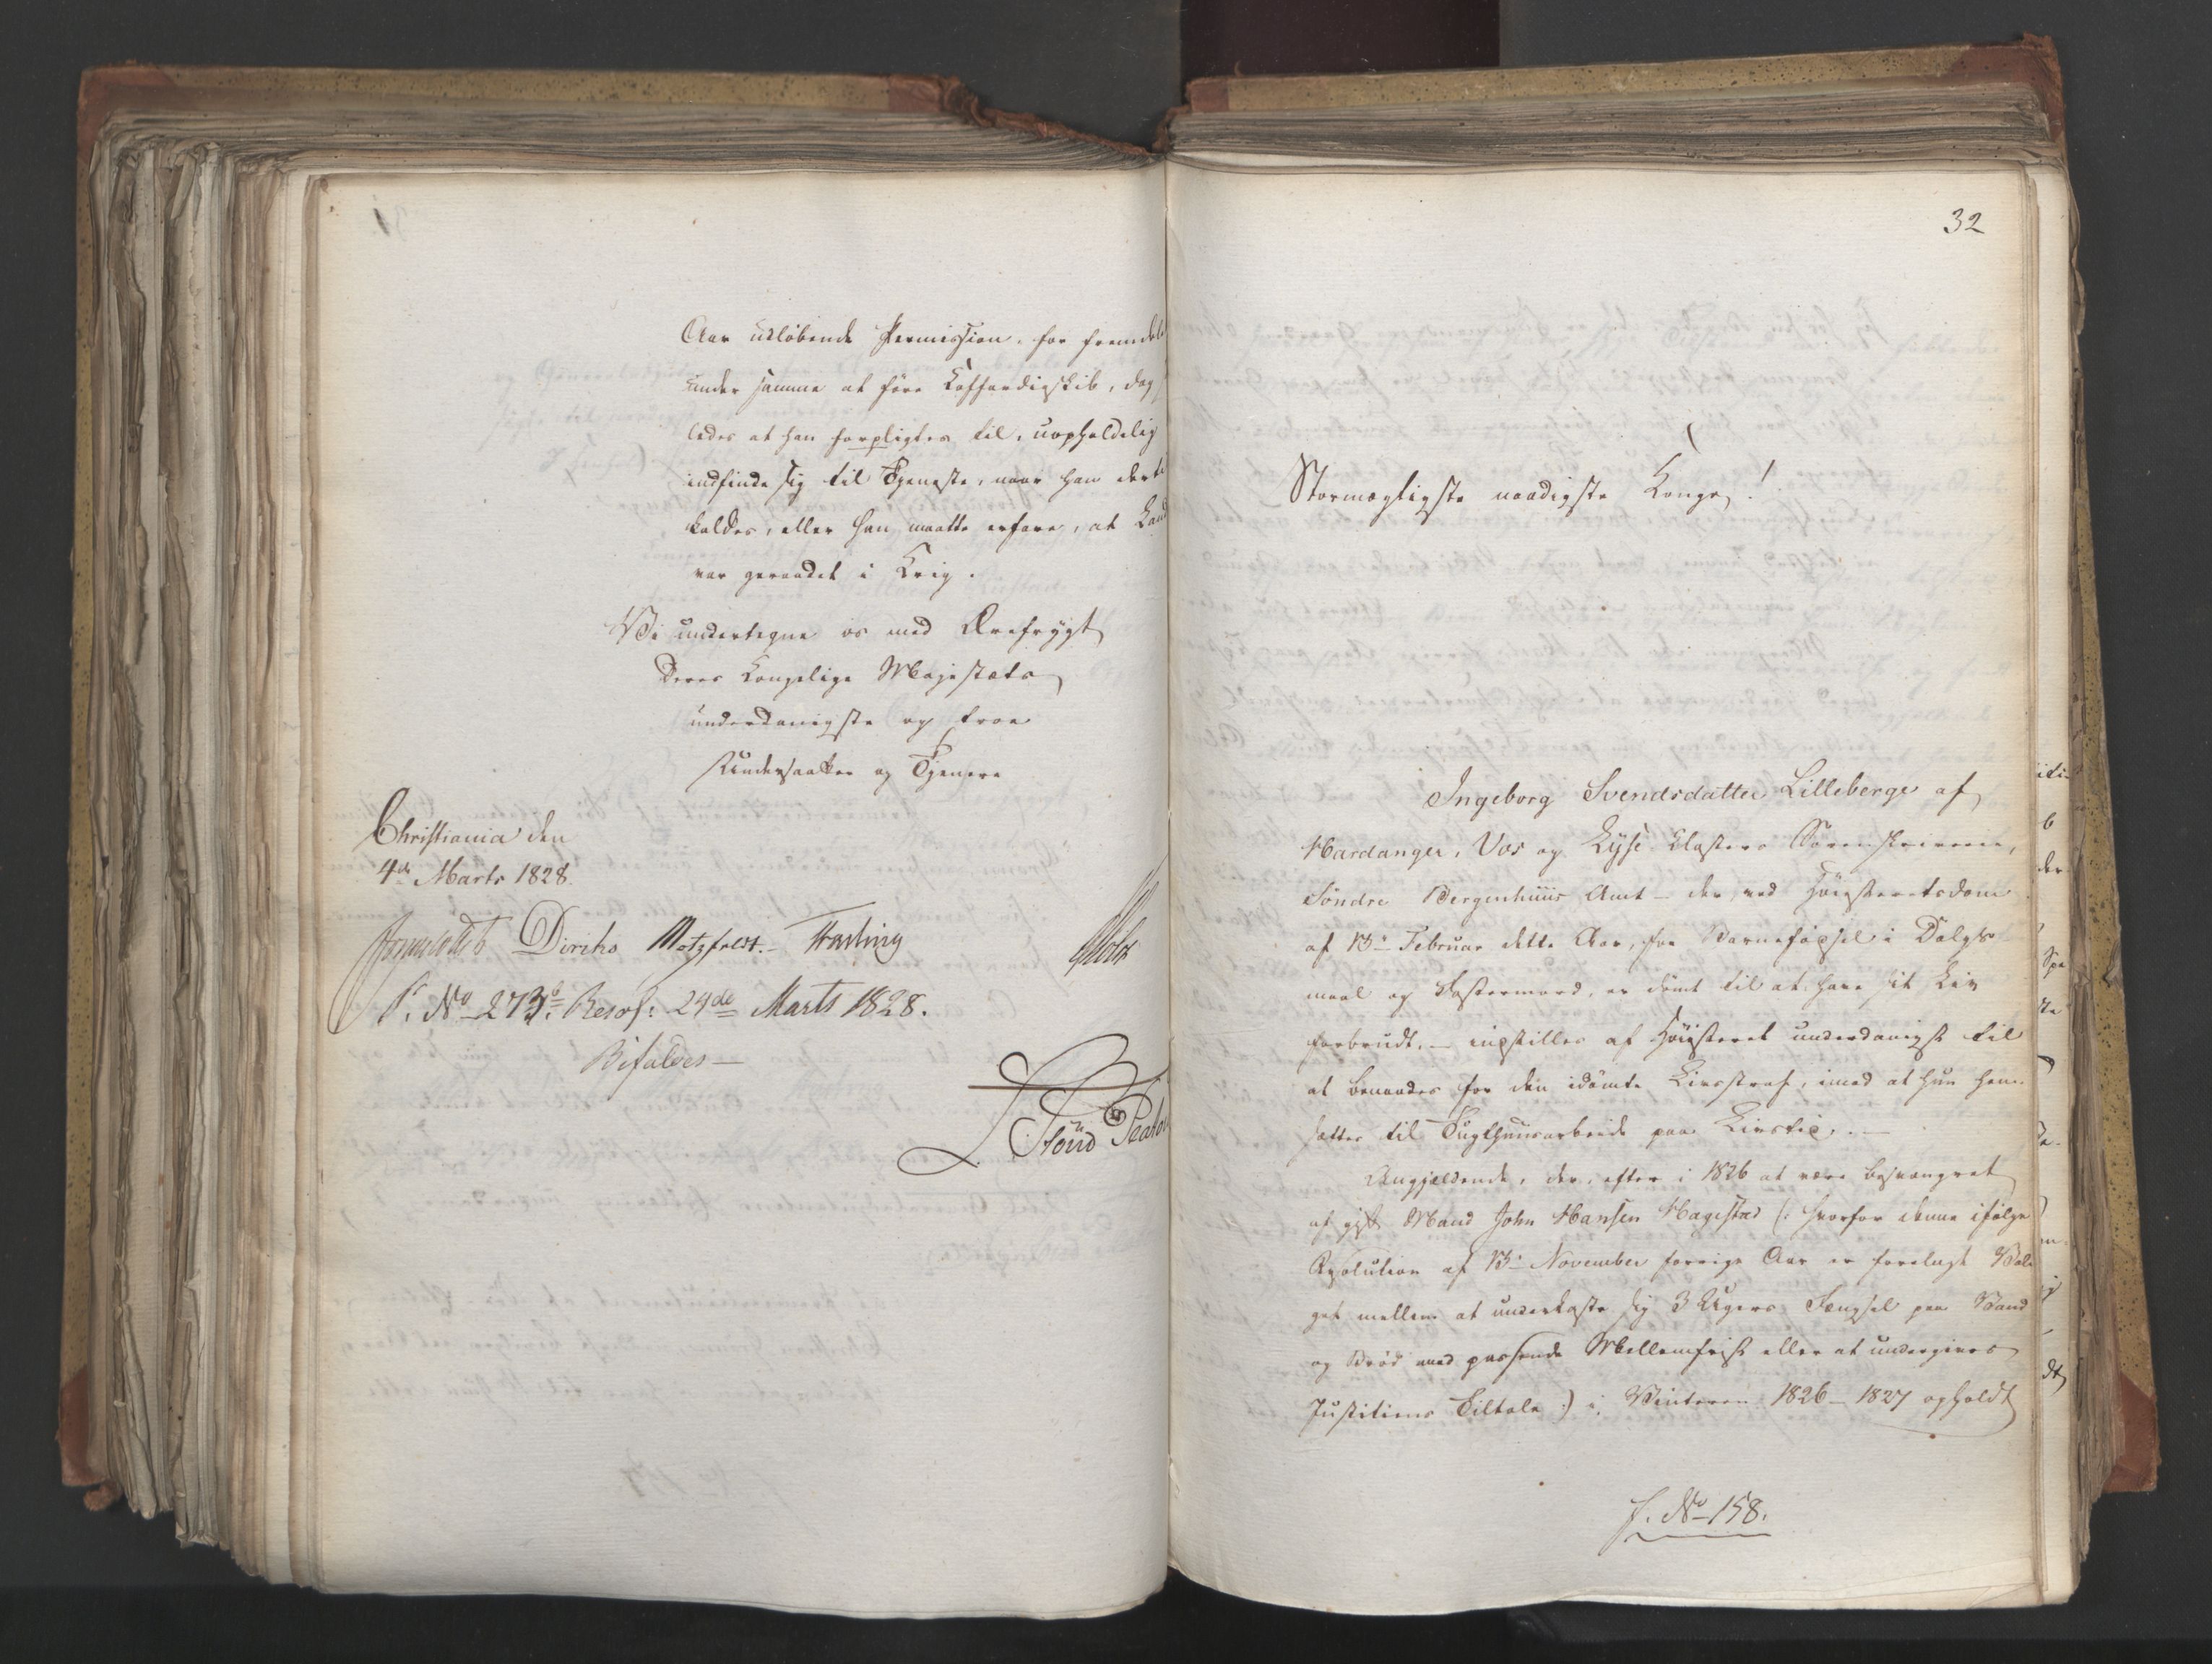 Aar udløbende Permission, for fremdeles
under samme at føre Koffardieskib, dog
ledes at han forpligtes til, uopholdelig
indfinde sig til Tjeneste, naar han dertil
kaldes, eller han maatte erfare, at Land
var geraadet i Krig.
Vi undertegne os med Ærefrygt
Deres Kongelige Majestæts
underdanigste og troe
Undersaatter og Tjenere
Christiania den
4de Marts 1828.
Diriks Motzfeldt. Fasting
P. No 273. Resol: 24de Marts 1828.
Bifaldes
32
Stormægtigste naadigste Konge!
Ingeborg Svendsdatter Lilleberge af
Hardanger, Vos og Lyse Klosters Sorenskriverie,
Søndre Bergenhuus Amt – der, ved Høiesteretsdom
af 13de Februar dette Aar, for Barnefødsel i Dølgs-
maal og Fostermord, er dømt til at have sit Liv
forbrudt, – indstilles af Høiesteret underdanigst til
at benaades for den idømte Livsstraf, imod at hun hen-
sættes til Tugthuusarbeide paa Livstid. –
Angjeldende, der, efter i 1826 at være besvangret
af gift Mand John Hansen Hagestad (: hvorfor denne ifølge
Resolution af 13de November forrige Aar er forelagt Val-
get mellem at underkaste sig 3 Ugers Fængsel paa Vand
og Brød med passende Mellemfrist eller at undergives
Justitiens Tiltale :) i Vinteren 1826–1827 opholdt
J. No 158.